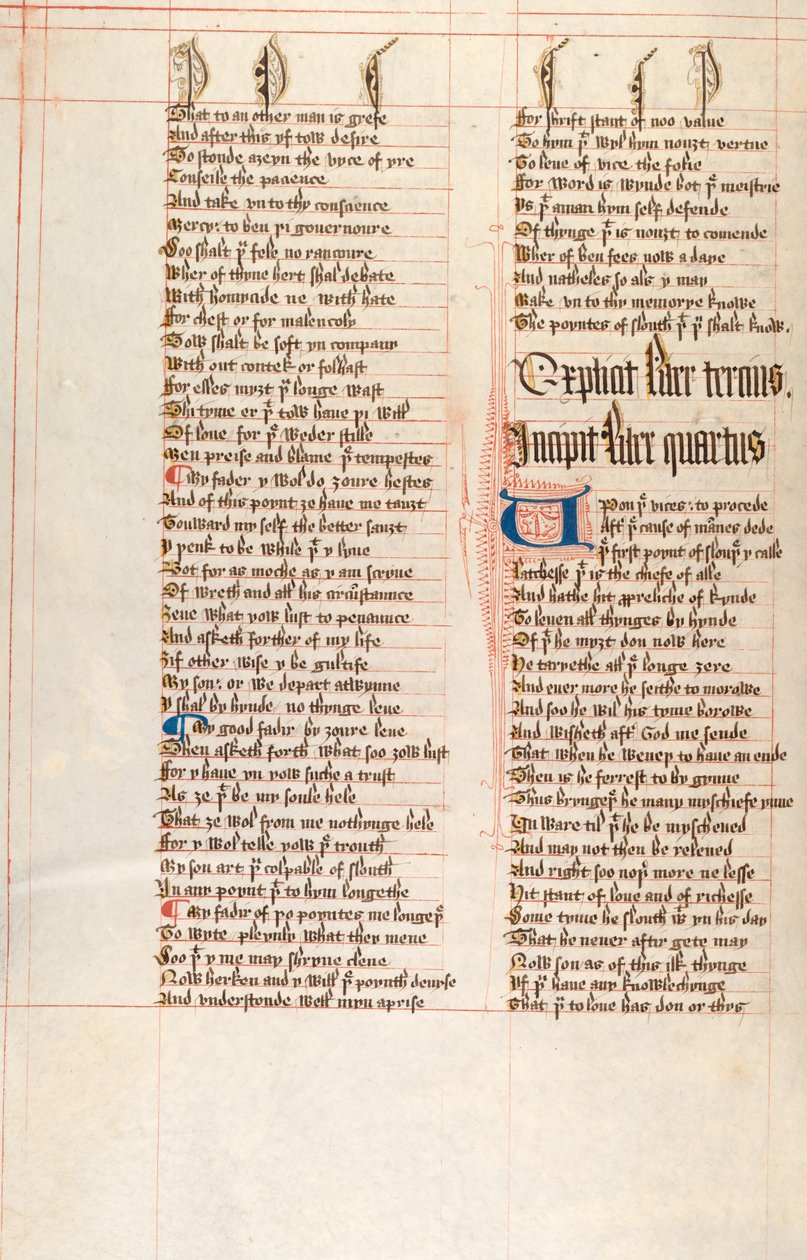 That to an other man is grefe
And after this yf tow desire
To stonde aȝeyn the vyce of yre
Conseile the pacience
And take vn to thy conscience
Mercy: to ben þi gouernoure
Soo shalt þu fele no rancoure
Wher of thyne hert shal debate
With homycide ne with hate
For chest or for malencoly
Tow shalt be soft yn company
With out contek or folhast
For elles myȝt þu longe wast
Thi tyme er þt tow haue þi will
Of loue for þe weder stille
Men preise and blame þe tempestes
¶ My fader y wol do ȝoure hestes
And of this poynt ȝe haue me tauȝt
Toulward my self the better sauȝt
Y þenk to be while þt y lyue
Bot for as moche as y am scryue
Of wreth and all his circumstaunce
Ȝeue what yow lust to penaunce
And asketh forther of my life
Ȝif other wise y be gultife
My son: or we depart atwynne
Y shal by hynde no thynge leue
¶ My good fadir by ȝoure leue
Then asketh forth what soo ȝow lust
For y haue yn yow suche a trust
As ȝe þt be my soule hele
That ȝe wol from me nothynge hele
For y wol telle yow þe trouth
My son art þu colpable of slouth
In any poynt þt to hym longethe
¶ My fadir of þo poyntes me longeþe
To wyte pleynly what they mene
Soo þt y me may shryue clene
Now herken and y will þe poynth deuyse
And vnderstonde well myn aprise
For shrift stant of noo value
To hym þt wyl hym nouȝt vertue
To leue of vice the folie
For word is wynde bot þe meistrie
Ys þt aman hym self defende
Of thynge þt is nouȝt to comende
Wher of ben fees now a daye
And natheles so als y may
Make vn to thy memorye knowe
The poyntes of slouth þt þu shalt know.
Explicit liber tercius.
Incipit liber quartus
Vpon þe vices: to procede
Aftr þe cause of mānes dede
þe first poynt of slouþe y calle
Latchesse þt is the chiefe of alle
And hathe hit propreliche of kynde
To leuen all thynges by hynde
Of þt he myȝt don now here
He taryethe all þe longe ȝere
And euer more he seithe to morowe
And soo he wil his tyme borowe
And wisheth aftr God me sende
That when he weneþ to haue an ende
Then is he ferrest to by gynne
Thus bryngeþe he many myschiefe ynne
Vn ware til þt he be myscheued
And may not then be releued
And right soo noþer more ne lesse
Hit stant of loue and of richesse
Some tyme he slouth is yn his day
That he neuer aftir gete may
Now son as of this ilk thynge
Yf þu haue any knowlechynge
That þu to loue has don or thys